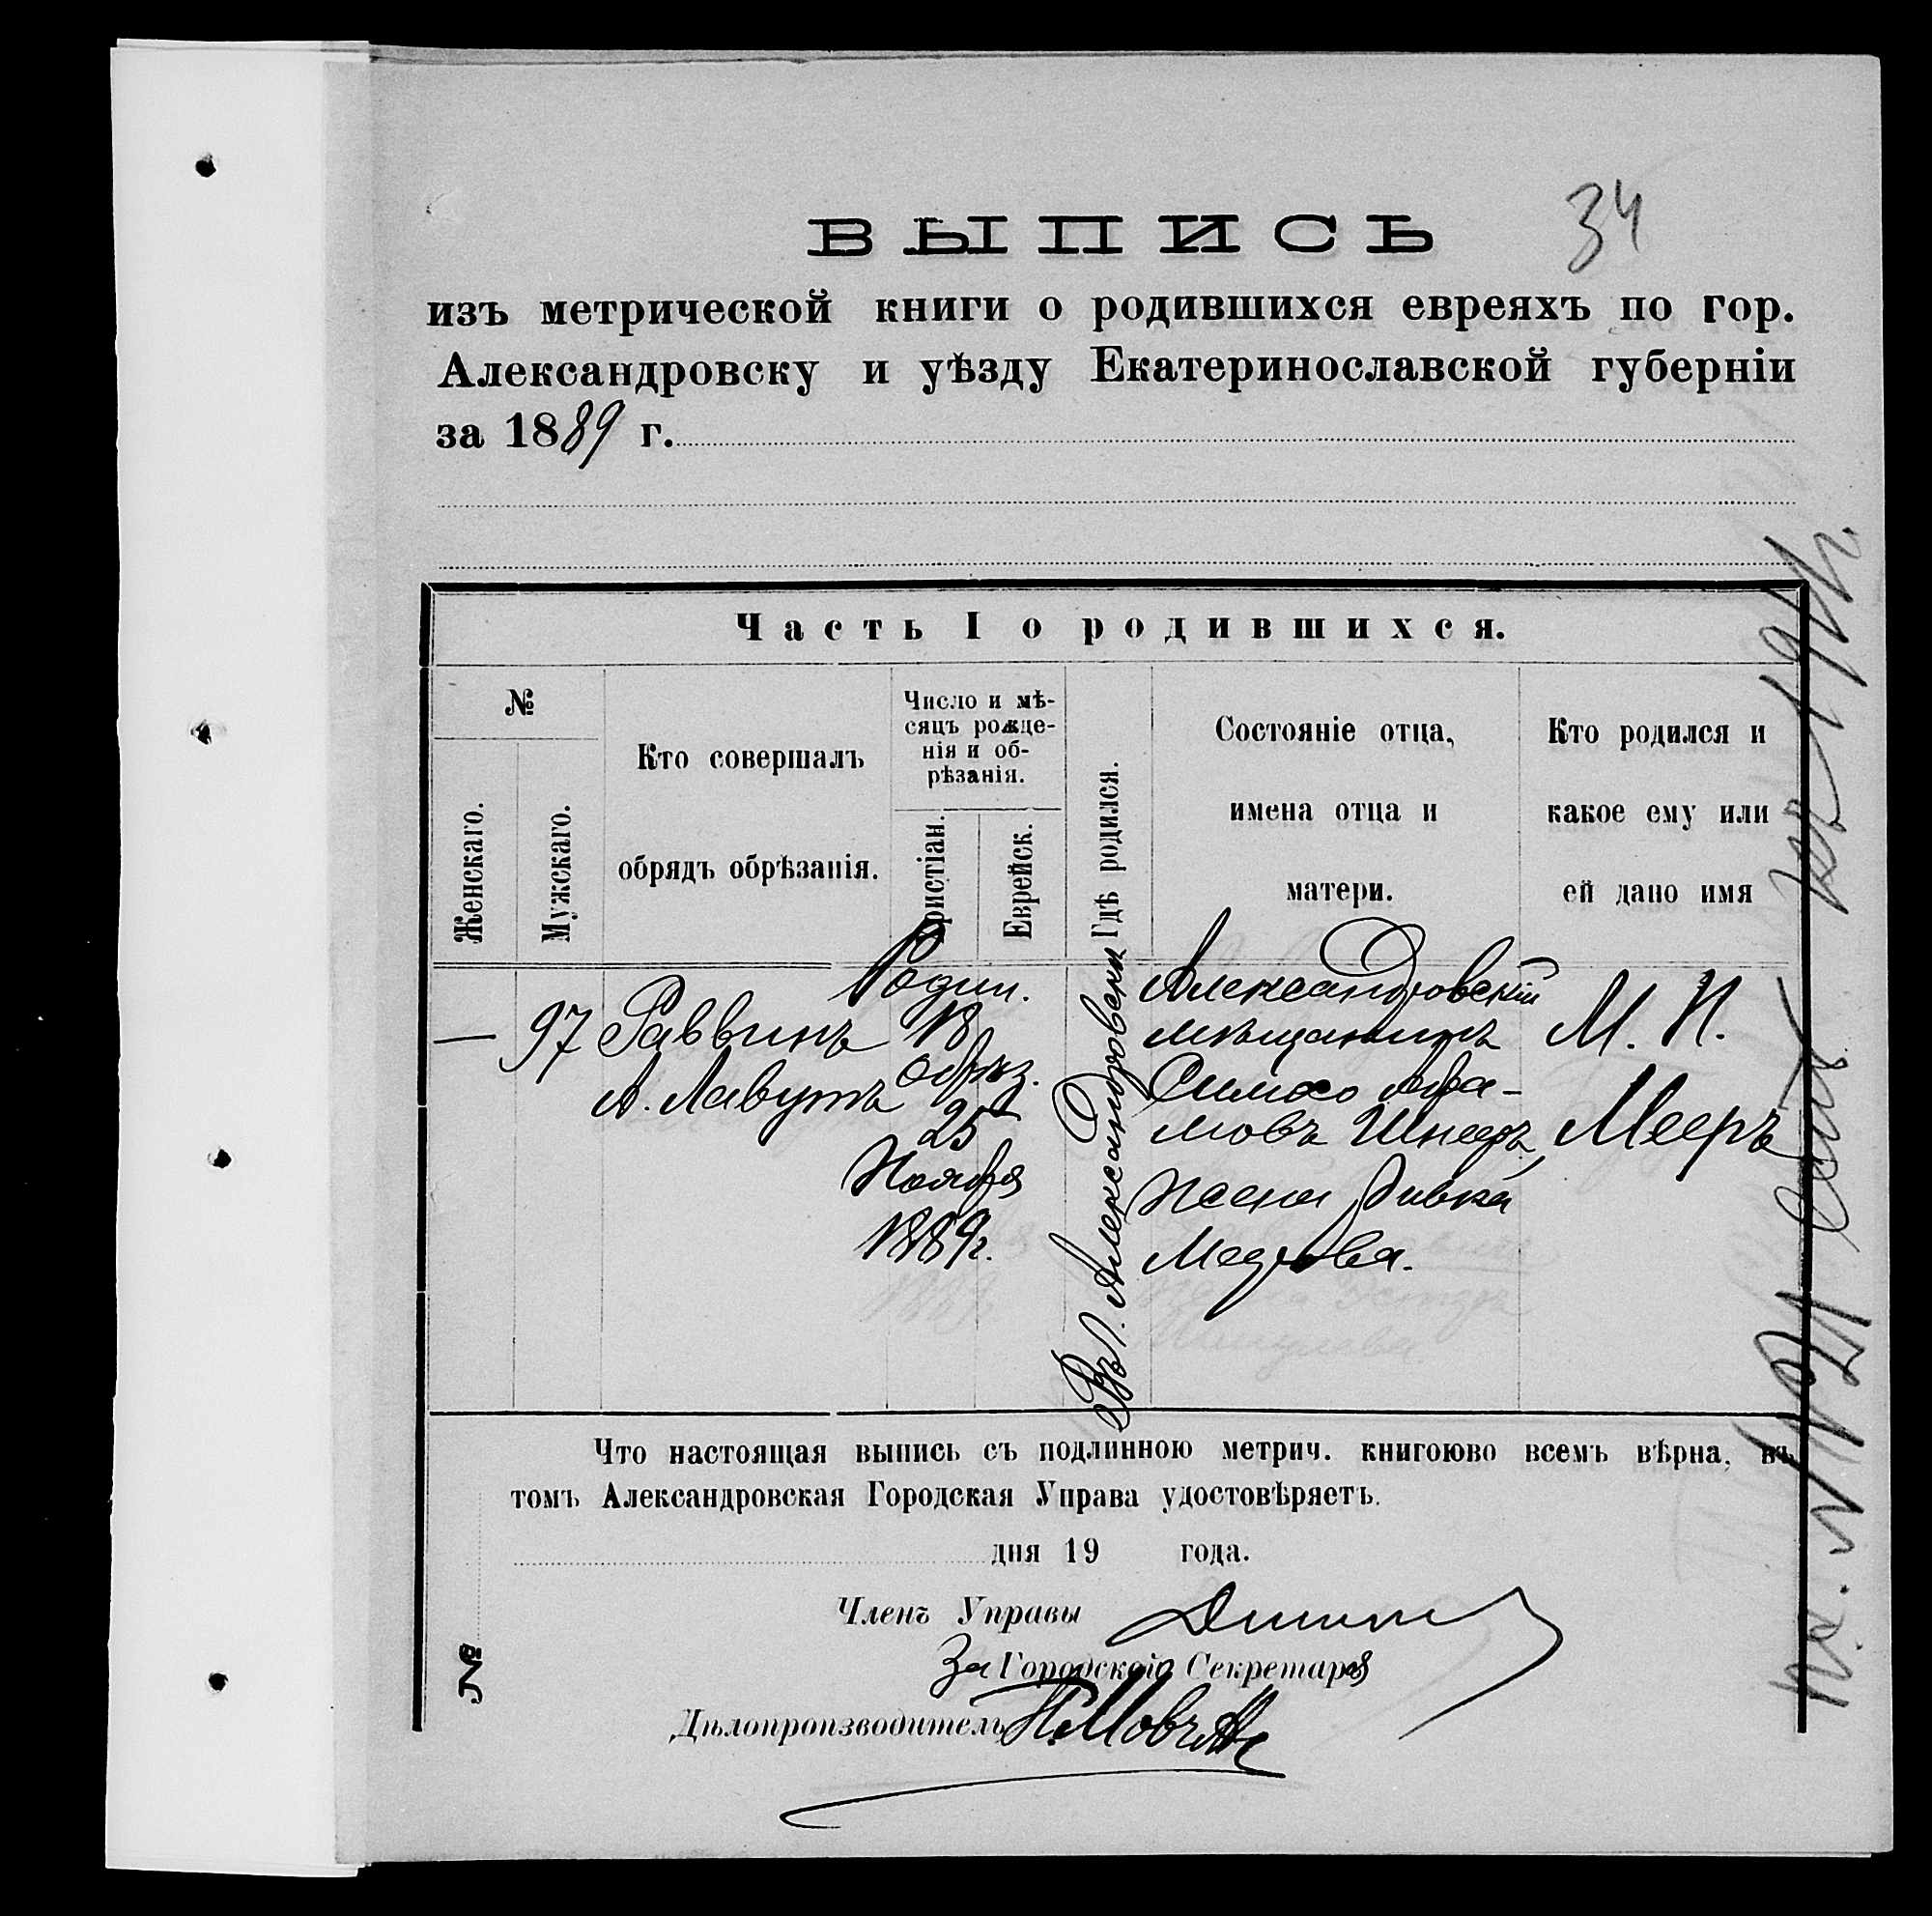 ВЫПИСЬ
34
изъ метрической книги о родившихся евреяхъ по гор.
Александровску и уѣзду Екатеринославской губерніи
за 1889 г.
Часть I о родившихся.
№
Женскаго.
Мужскаго.
Кто совершалъ
обрядъ обрѣзанія.
Число и мѣ-
сяцъ рожде-
нія и об-
рѣзанія.
Христіан.
Еврейск.
Гдѣ родился.
Состояніе отца,
имена отца и
матери.
Кто родился и
какое ему или
ей дано имя
— 97
Раввинъ
А. Лавутъ
Родил.
18
обрѣз.
25
Ноября
1889г.
Въ г. Александровскѣ
Александровскій
мѣщанинъ
Симхо Абра-
мовъ Шнееръ,
жена Ривка
М. П.
Мееръ
Что настоящая выпись съ подлинною метрич. книгоюво всемъ вѣрна, въ
томъ Александровская Городская Управа удостовѣряетъ.
дня 19 года.
Членъ Управы
За Городской Секретаря
Дѣлопроизводитель
№